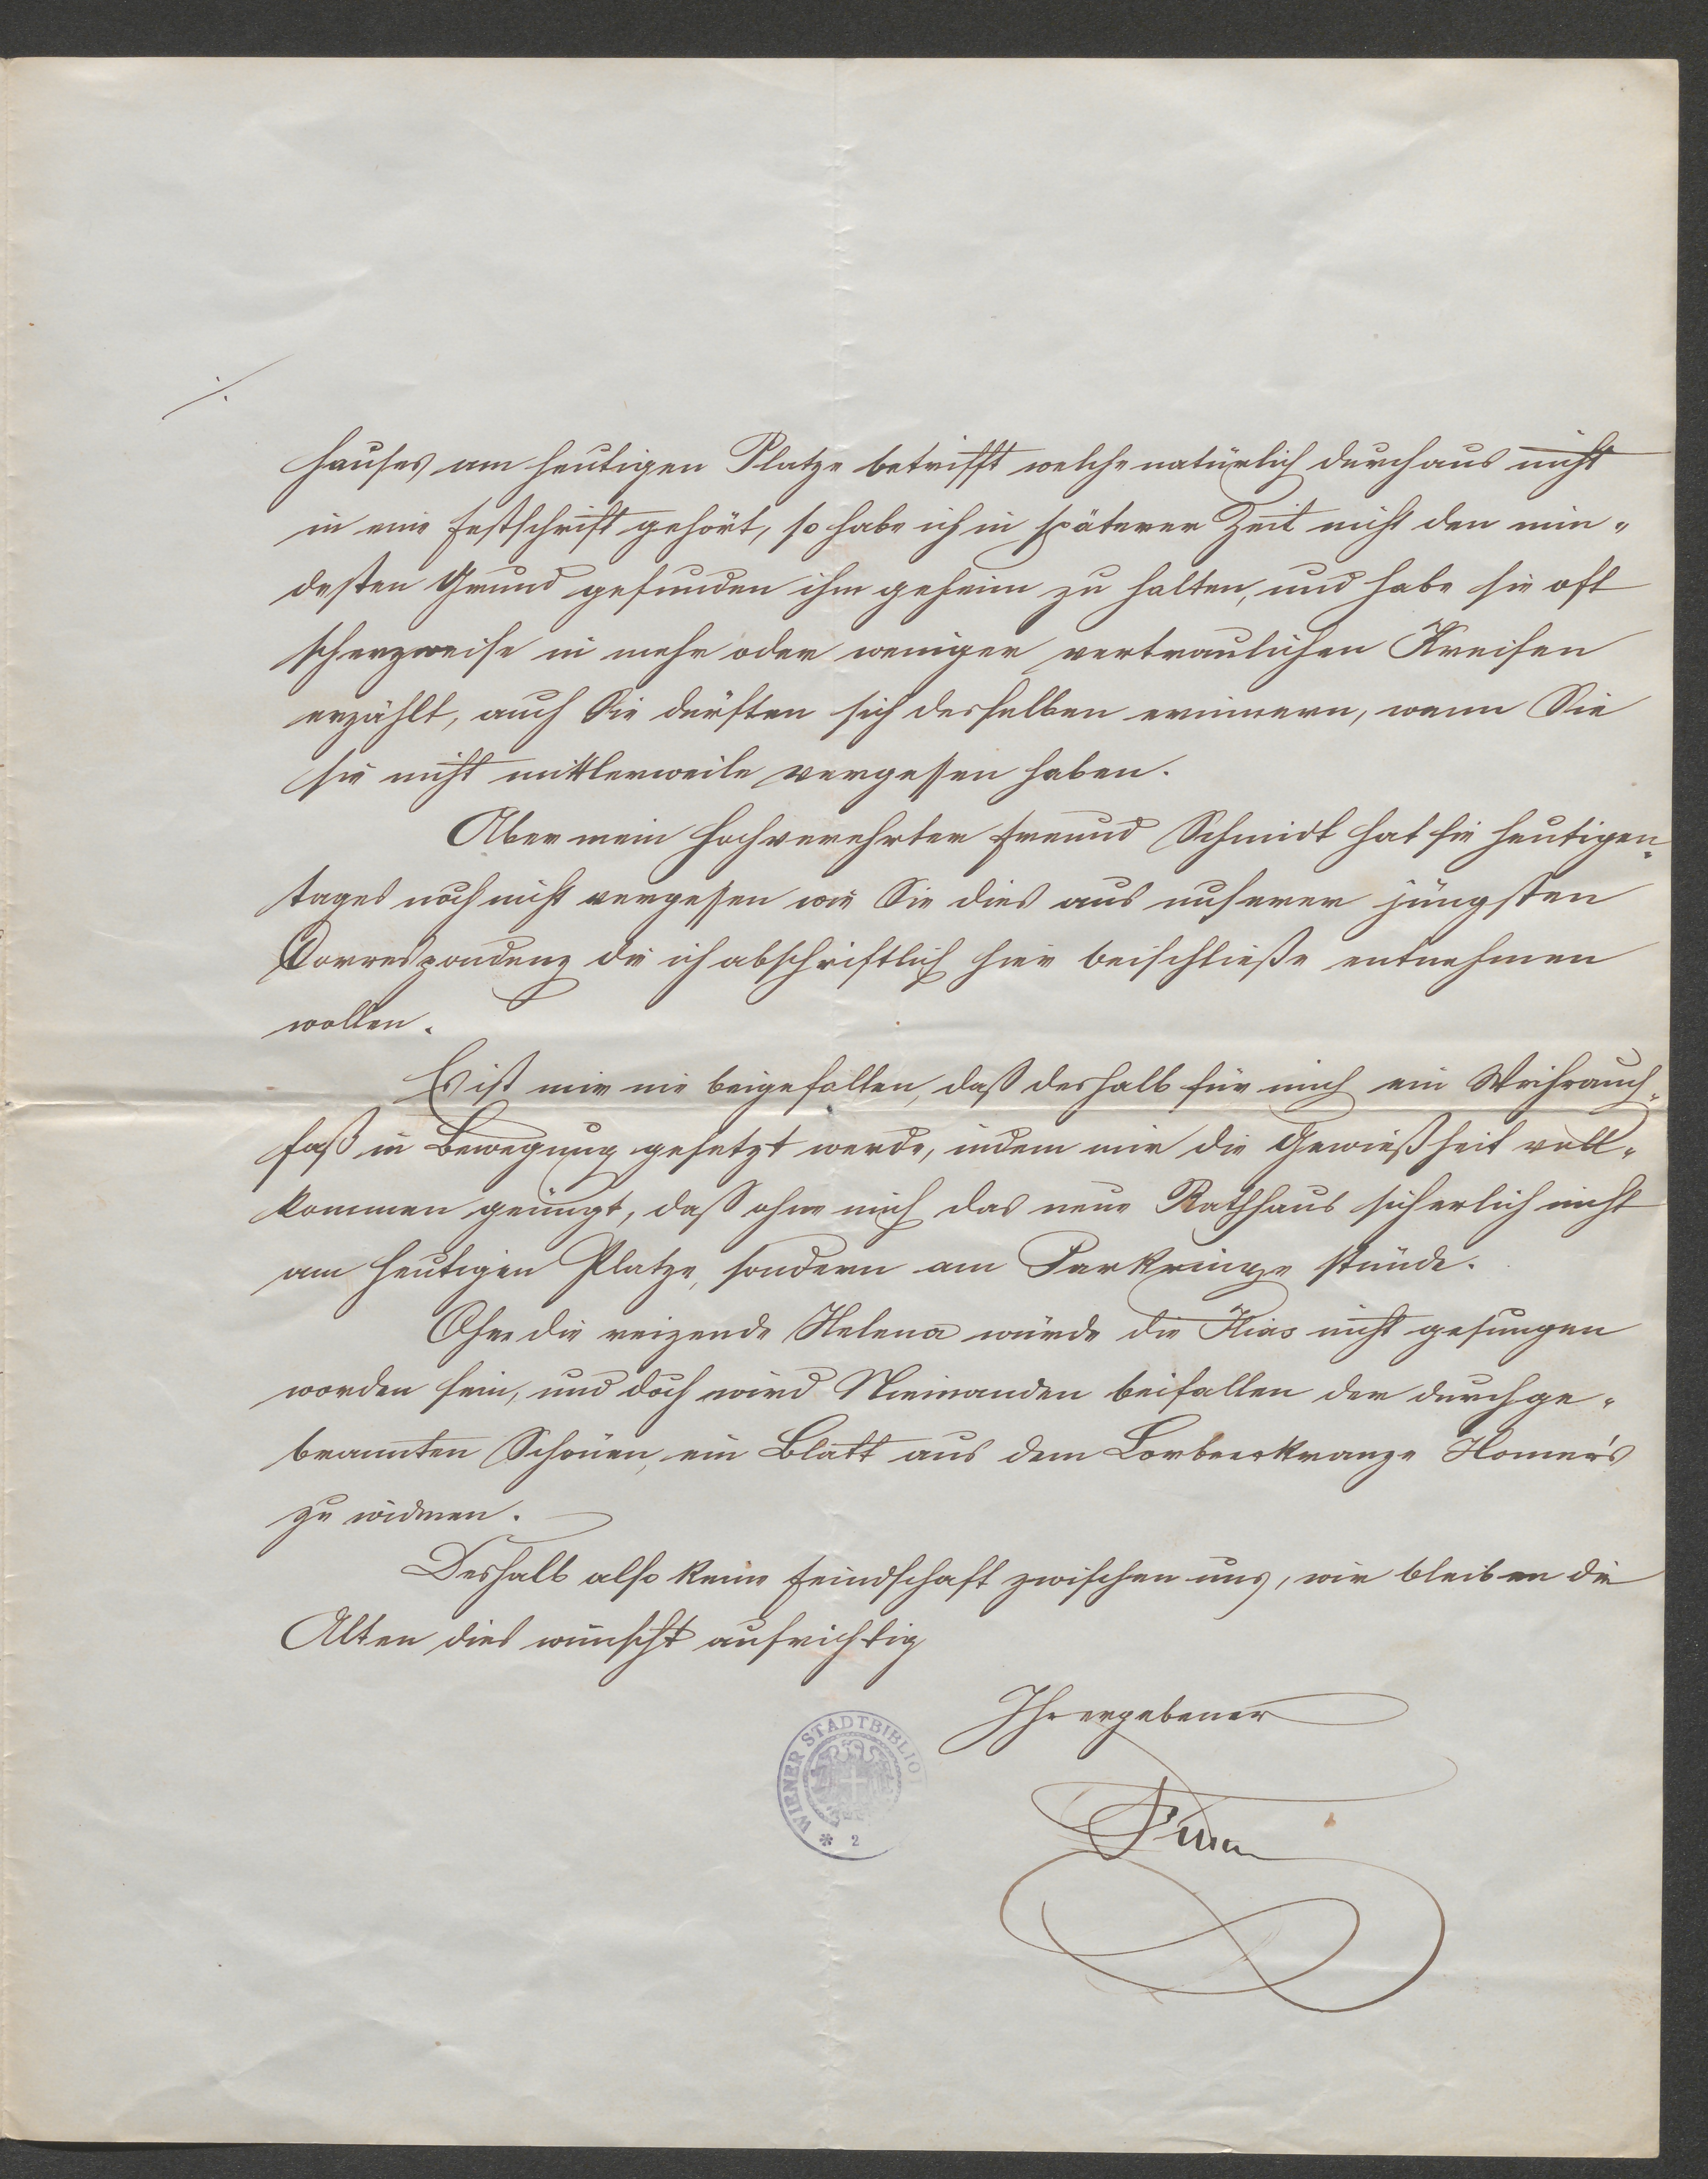 ./.
hauses am heutigen Platze betrifft welche natürlich durchaus nicht
in eine Festschrift gehört, so habe ich in späterer Zeit nicht den min-
desten Grund gefunden ihm geheim zu halten, und habe sie oft
scherzweise in mehr oder weniger vertraulichen Kreisen
erzählt, auch Sie dürften sich derselben erinnern, wenn Sie
sie nicht mittlerweile vergessen haben.
Aber mein hochverehrter Freund Schmidt hat sie heutigen-
tages noch nicht vergessen wie Sie dies aus unserer jüngsten
Correspondenz die ich abschriftlich hier beischließe entnehmen
wollen.
Es ist mir nie beigefallen, daß deshalb für mich ein Weihrauch-
faß in Bewegung gesetzt werde, indem mir die Gewißheit voll-
kommen genügt, daß ohne mich das neue Rathhaus sicherlich nicht
am heutigen Platze, sondern am Parkringe stünde.
Ohne die reizende Helena würde die Ilias nicht gesungen
worden sein, und doch wird Niemanden beifallen der durchge-
brannten Schönen, ein Blatt aus dem Lorbeerkranze Homer's
zu widmen.
Deshalb also keine Feindschaft zwischen uns, wir bleiben die
Alten dies wünscht aufrichtig
Ihr ergebener
WIENER STADTBIBLIOT
* 2